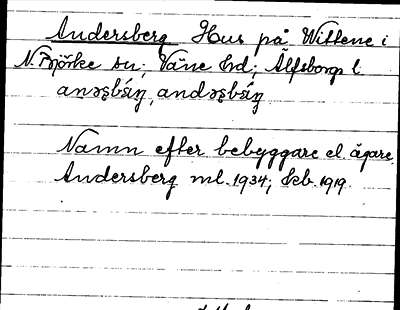 Andersberg Hus på Wittene i
N. Björke sn; Väne hd; Älfsborgs l.
Namn efter bebyggare el. ägare.
Andersberg ml. 1934; kb. 1919.